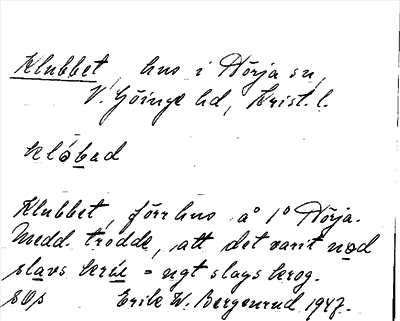 Klubbet, hus i Nörja sn,
V. Göinge hd, Krist. l.
klåbad
Klubbet, förr hus å 1º Nörja.
Medd. trodde, att det varit nod
slavs = ngt slags krog.
sOs Erik W. Bergenrud 1947.